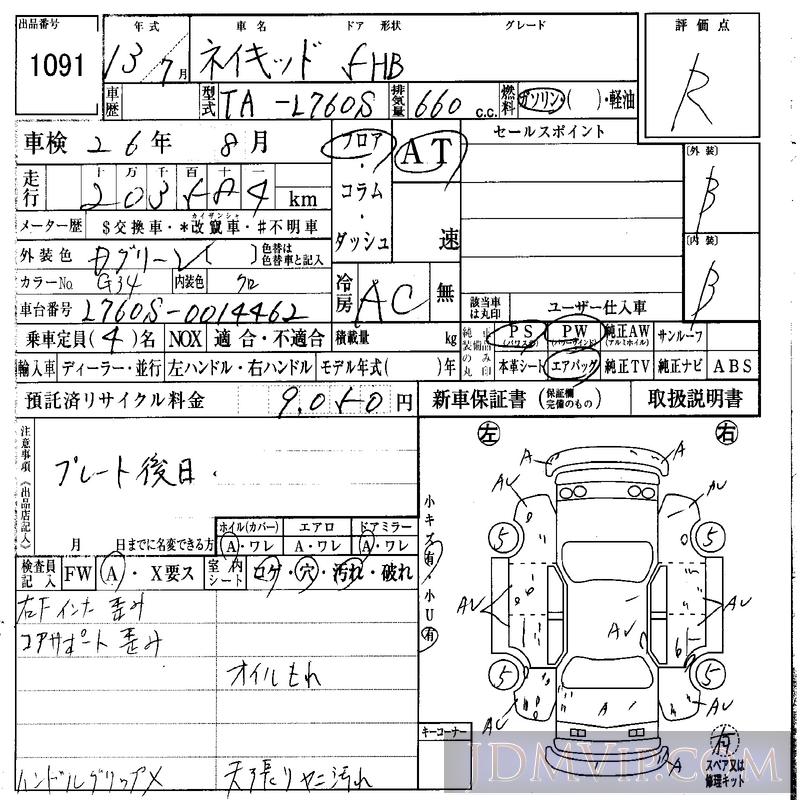 出品番号 1091
年式 車名 ドア形状 グレード
13 7月 ネイキッド 5HB
車歴 型式 TA-L760S 排気量 660 c.c. 燃料 ガソリン・( )・軽油
評価点 R
車検 26年 8月
フロア・コラム・ダッシュ
AT 速
セールスポイント
走行 十万千百十一 203584 km
メーター歴 $交換車・*改竄車・#不明車
カイザンシャ
外装色 Dグリーン( ) 色替は色替車と記入
カラーNo. G34 内装色 クロ
冷房 AC 無
車台番号 L760S-0014462
[外装] B
[内装] B
該当車は丸印 ユーザー仕入車
乗車定員(4)名 NOX 適合・不適合 積載量 kg
純正装備品のみ丸印 PS (パワステ) PW (パワーウインド) 純正AW (アルミホイル) サンルーフ
輸入車 ディーラー・並行 左ハンドル・右ハンドル モデル年式( )年
本革シート エアバッグ 純正TV 純正ナビ ABS
預託済リサイクル料金 9.050円
新車保証書 (保証欄完備のもの) 取扱説明書
注意事項《出品店記入》
プレート後日.
月 日までに名変できる方
ホイル(カバー) エアロ ドアミラー
A・ワレ A・ワレ A・ワレ
検査員記入 FW A・X要ス 室内シート コゲ・穴・汚れ・破れ
右Fインナー歪み
コアサポート歪み
オイルもれ
ハンドルグリップX 天張りヤニ汚れ
小キズ有・小U有
キーコーナー
左 右
A A
AU AU
5 5
AU AU AU
5 5
AU A AU
A
有
スペア又は修理キット
JDMVIP.COM